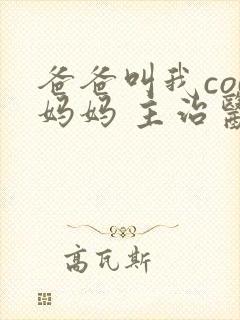 爸爸叫我co
妈妈 主治
高瓦斯